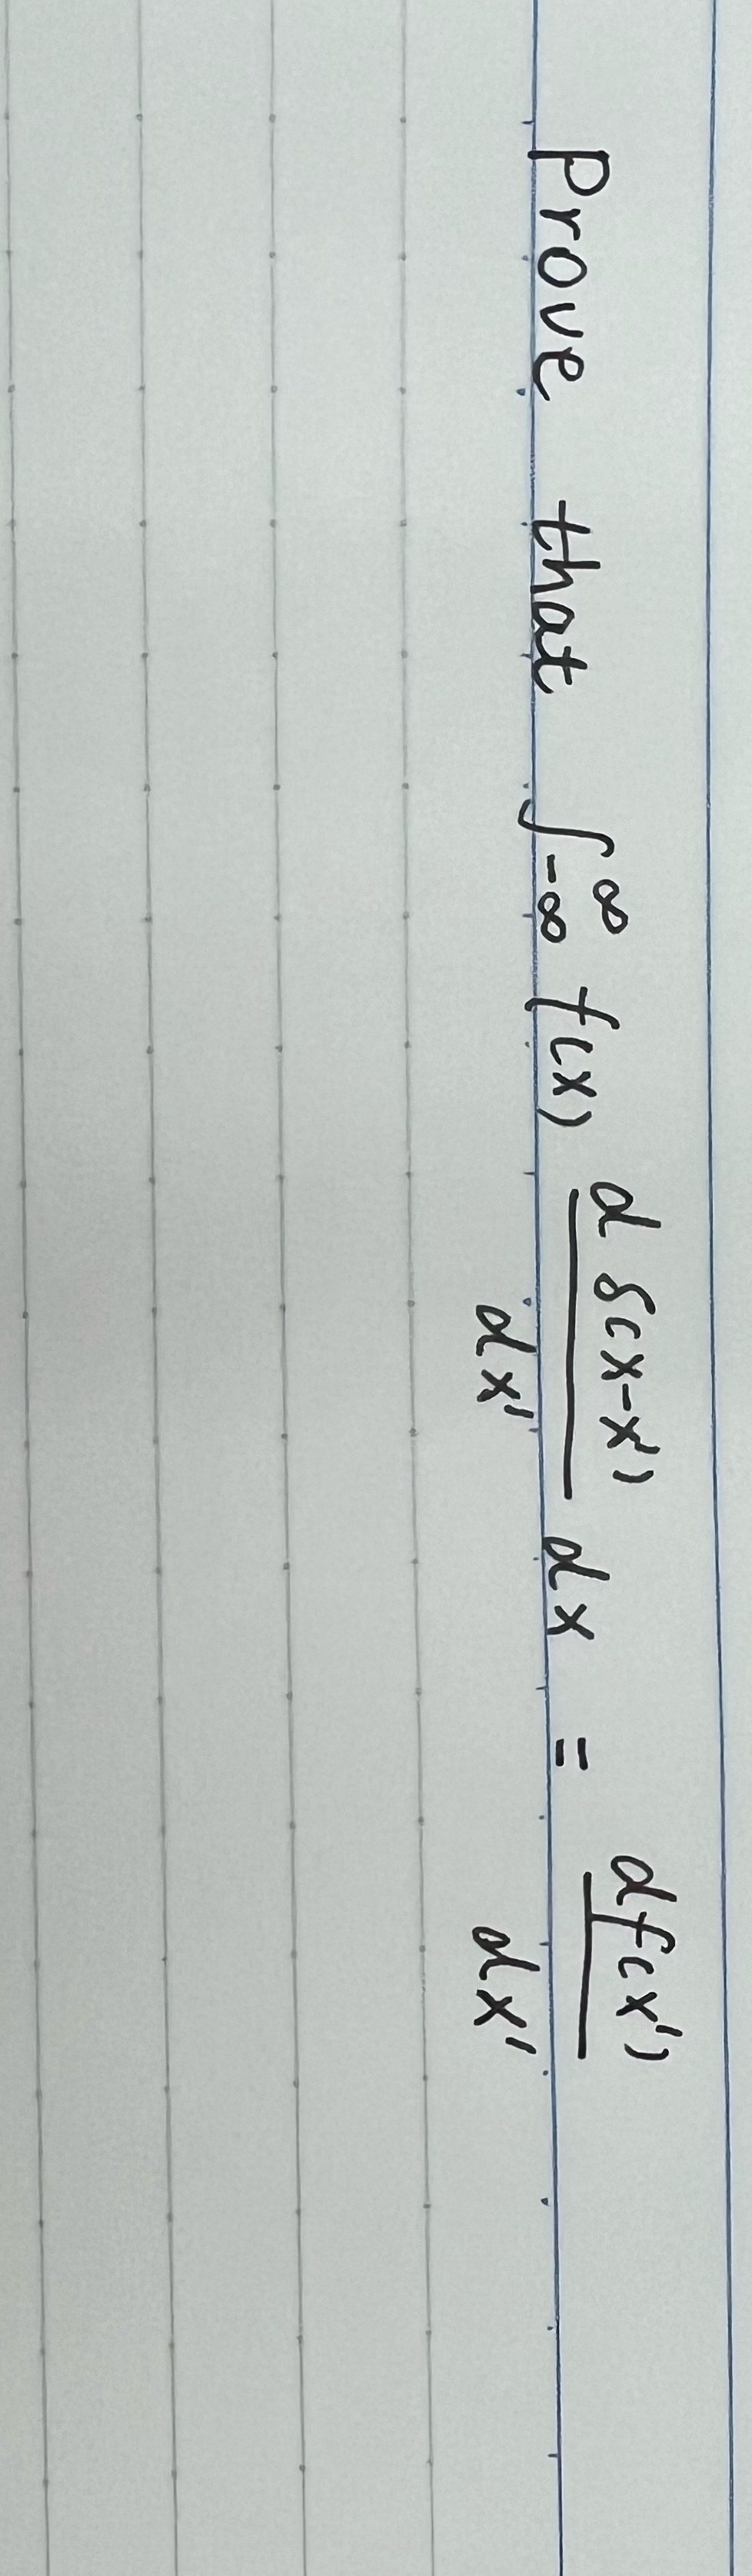 Prove that ∫_{-∞}^{∞} f(x) \frac{d δ(x-x')}{dx'} dx = \frac{df(x')}{dx'}